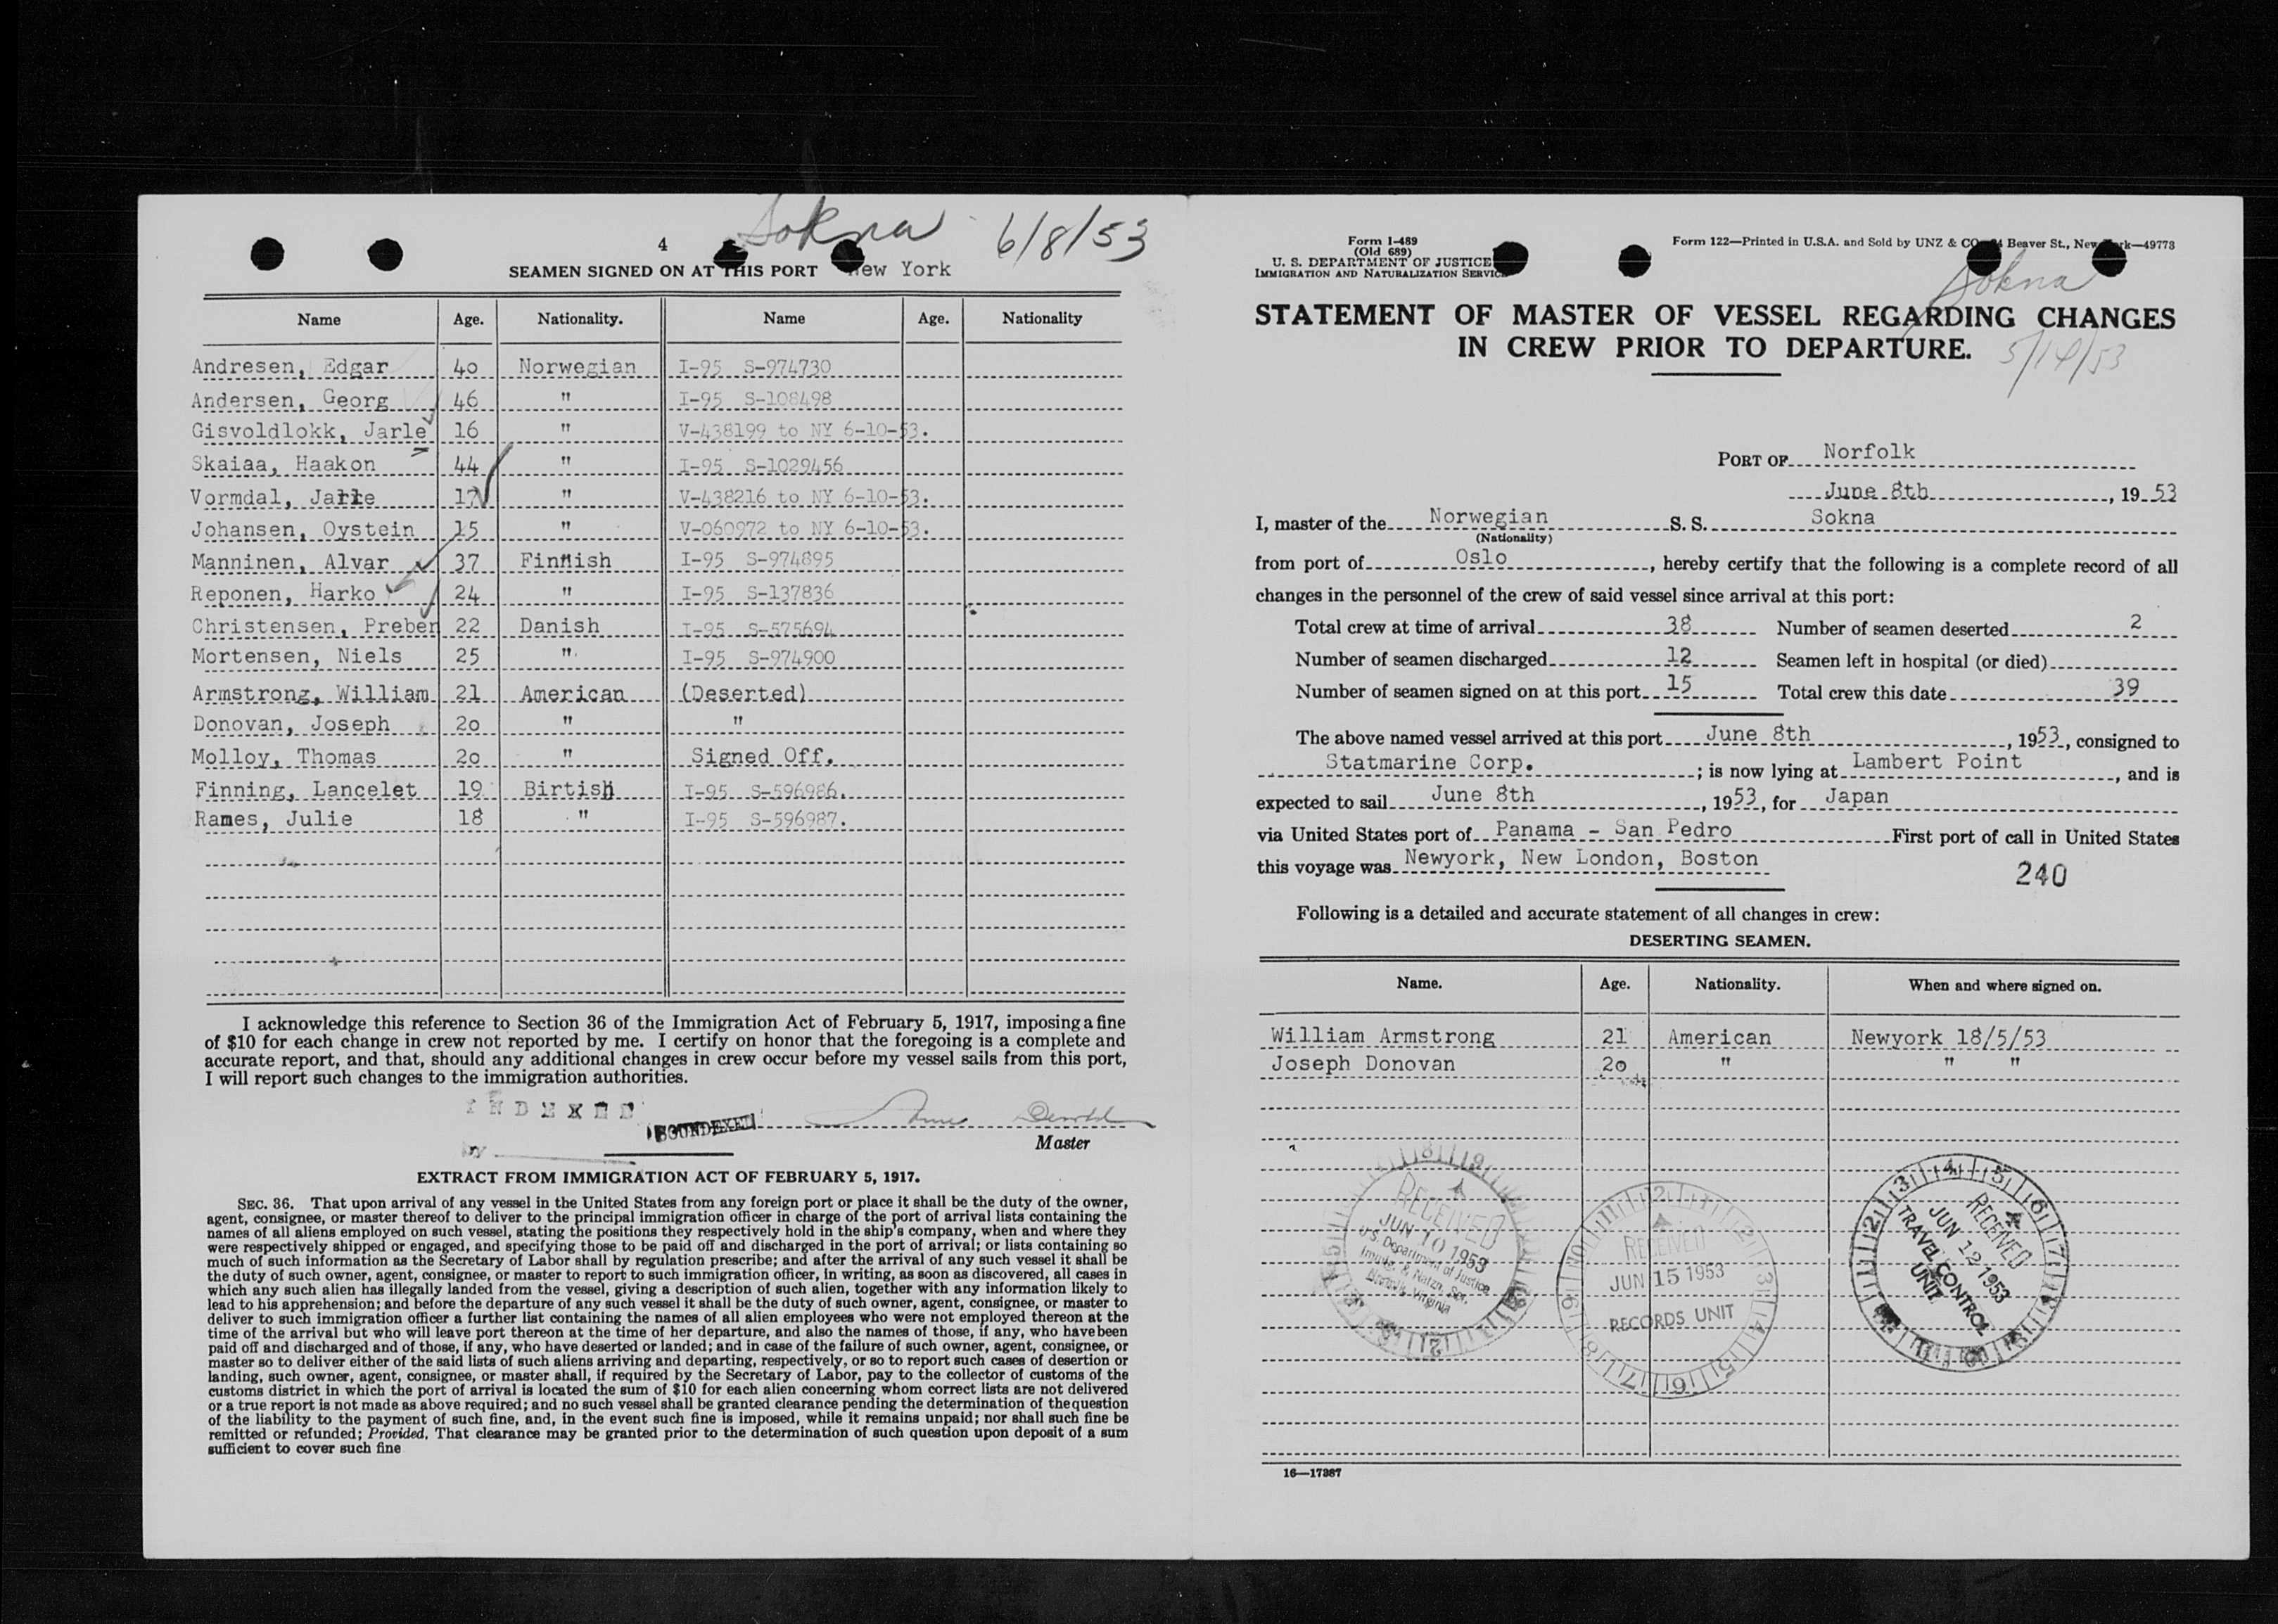 Sokna 6/8/53
4
SEAMEN SIGNED ON AT THIS PORT New York
Name Age. Nationality. Name Age. Nationality
Andresen, Edgar 40 Norwegian I-95 S-974730
Andersen, Georg 46 " I-95 S-108498
Gisvoldlokk, Jarle 16 " V-438199 to NY 6-10-53.
Skaiaa, Haakon 44 " I-95 S-1029456
Vormdal, Jarle 17 " V-438216 to NY 6-10-53.
Johansen, Oystein 15 " V-060972 to NY 6-10-53.
Manninen, Alvar 37 Finnish I-95 S-974895
Reponen, Harko 24 " I-95 S-137836
Christensen, Preben 22 Danish I-95 S-575694
Mortensen, Niels 25 " I-95 S-974900
Armstrong, William 21 American (Deserted)
Donovan, Joseph 20 " "
Molloy, Thomas 20 " Signed Off.
Finning, Lancelet 19 Birtish I-95 S-596986.
Rames, Julie 18 " I-95 S-596987.
I acknowledge this reference to Section 36 of the Immigration Act of February 5, 1917, imposing a fine
of $10 for each change in crew not reported by me. I certify on honor that the foregoing is a complete and
accurate report, and that, should any additional changes in crew occur before my vessel sails from this port,
I will report such changes to the immigration authorities.
INDEXED
SOUNDEXED
Master
EXTRACT FROM IMMIGRATION ACT OF FEBRUARY 5, 1917.
SEC. 36. That upon arrival of any vessel in the United States from any foreign port or place it shall be the duty of the owner,
agent, consignee, or master thereof to deliver to the principal immigration officer in charge of the port of arrival lists containing the
names of all aliens employed on such vessel, stating the positions they respectively hold in the ship's company, when and where they
were respectively shipped or engaged, and specifying those to be paid off and discharged in the port of arrival; or lists containing so
much of such information as the Secretary of Labor shall by regulation prescribe; and after the arrival of any such vessel it shall be
the duty of such owner, agent, consignee, or master to report to such immigration officer, in writing, as soon as discovered, all cases in
which any such alien has illegally landed from the vessel, giving a description of such alien, together with any information likely to
lead to his apprehension; and before the departure of any such vessel it shall be the duty of such owner, agent, consignee, or master to
deliver to such immigration officer a further list containing the names of all alien employees who were not employed thereon at the
time of the arrival but who will leave port thereon at the time of her departure, and also the names of those, if any, who have been
paid off and discharged and of those, if any, who have deserted or landed; and in case of the failure of such owner, agent, consignee, or
master so to deliver either of the said lists of such aliens arriving and departing, respectively, or so to report such cases of desertion or
landing, such owner, agent, consignee, or master shall, if required by the Secretary of Labor, pay to the collector of customs of the
customs district in which the port of arrival is located the sum of $10 for each alien concerning whom correct lists are not delivered
or a true report is not made as above required; and no such vessel shall be granted clearance pending the determination of the question
of the liability to the payment of such fine, and, in the event such fine is imposed, while it remains unpaid; nor shall such fine be
remitted or refunded; Provided, That clearance may be granted prior to the determination of such question upon deposit of a sum
sufficient to cover such fine
Form I-489
(Old 689)
U. S. DEPARTMENT OF JUSTICE
IMMIGRATION AND NATURALIZATION SERVICE
Form 122—Printed in U.S.A. and Sold by UNZ & CO. Beaver St., New York—49773
Sokna
STATEMENT OF MASTER OF VESSEL REGARDING CHANGES
IN CREW PRIOR TO DEPARTURE.
5/14/53
PORT OF Norfolk
June 8th, 1953
I, master of the Norwegian S. S. Sokna
(Nationality)
from port of Oslo, hereby certify that the following is a complete record of all
changes in the personnel of the crew of said vessel since arrival at this port:
Total crew at time of arrival 38 Number of seamen deserted 2
Number of seamen discharged 12 Seamen left in hospital (or died)
Number of seamen signed on at this port 15 Total crew this date 39
The above named vessel arrived at this port June 8th, 1953, consigned to
Statmarine Corp.; is now lying at Lambert Point, and is
expected to sail June 8th, 1953, for Japan
via United States port of Panama - San Pedro First port of call in United States
this voyage was Newyork, New London, Boston
240
Following is a detailed and accurate statement of all changes in crew:
DESERTING SEAMEN.
Name. Age. Nationality. When and where signed on.
William Armstrong 21 American Newyork 18/5/53
Joseph Donovan 20 " " "
RECEIVED
JUN 10 1953
U.S. Department of Justice
Immig. & Natzn. Ser.
Norfolk, Virginia
RECEIVED
JUN 15 1953
RECORDS UNIT
RECEIVED
JUN 12 1953
TRAVEL CONTROL
UNIT
16—17387